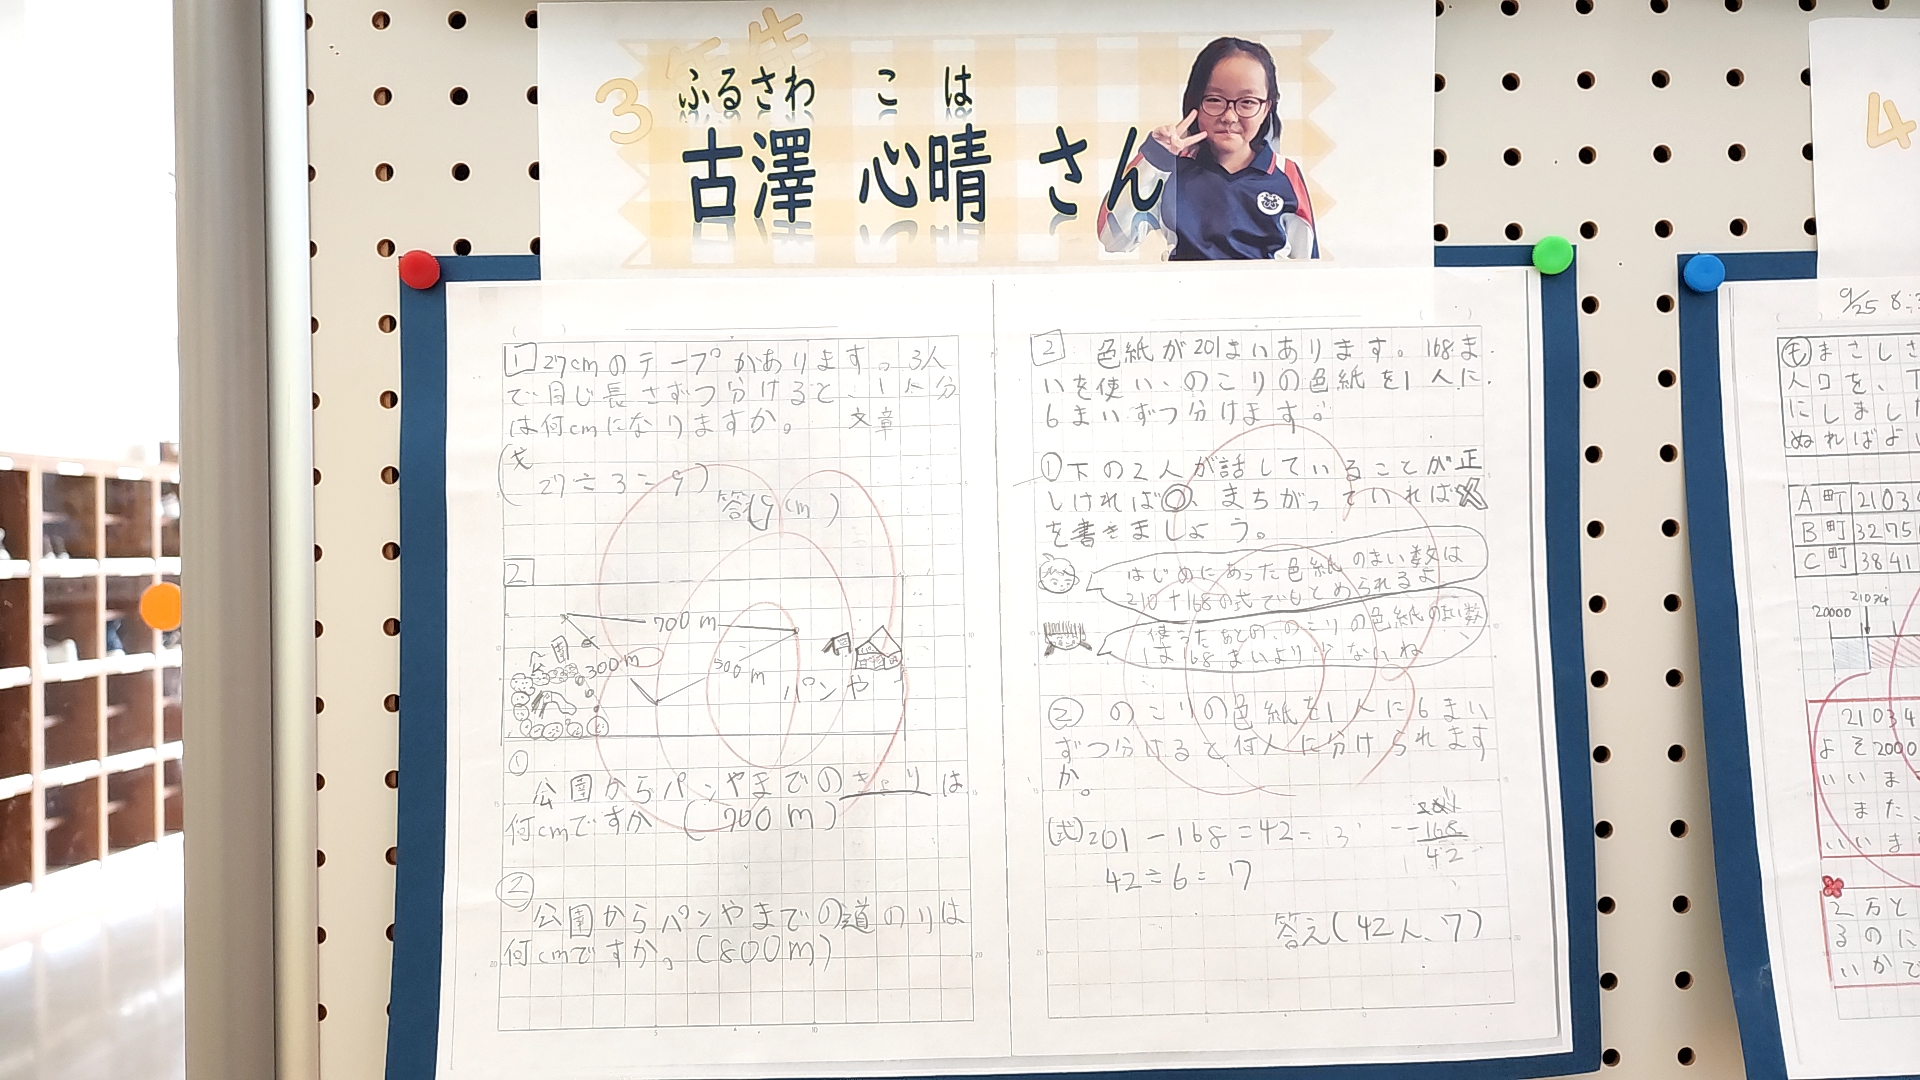 3年生
ふるさわ こ は
古澤 心晴 さん
1 27cmのテープがあります。3人
で同じ長さずつ分けると、1人分
は何cmになりますか。 文章
27÷3=9)
答え(9cm)
2
700m
300m
500m
パンや
①
公園からパンやまでのきょりは
何cmですか (700m)
②
公園からパンやまでの道のりは
何cmですか。(800m)
2 色紙が201まいあります。168ま
いを使い、のこりの色紙を1人に
6まいずつ分けます。
①下の2人が話していることが正
しければ○、まちがっていれば✕
を書きましょう。
はじめにあった色紙のまい数は
210+168の式でもとめられるよ
使ったあとの、のこりの色紙のまい数
は168まいより少ないね
② のこりの色紙を1人に6まい
ずつ分けると何人に分けられます
か。
(式)201-168=42
-168
42
42÷6=17
答え(42人、7)
4
9/25 8:3
も まさしさ
人口を、
にしました
ぬればよい
A町 2103
B町 3275
C町 3841
20000
21034
2034
よそ2000
いいま
また、
いいま
2万と
るのに
いかで